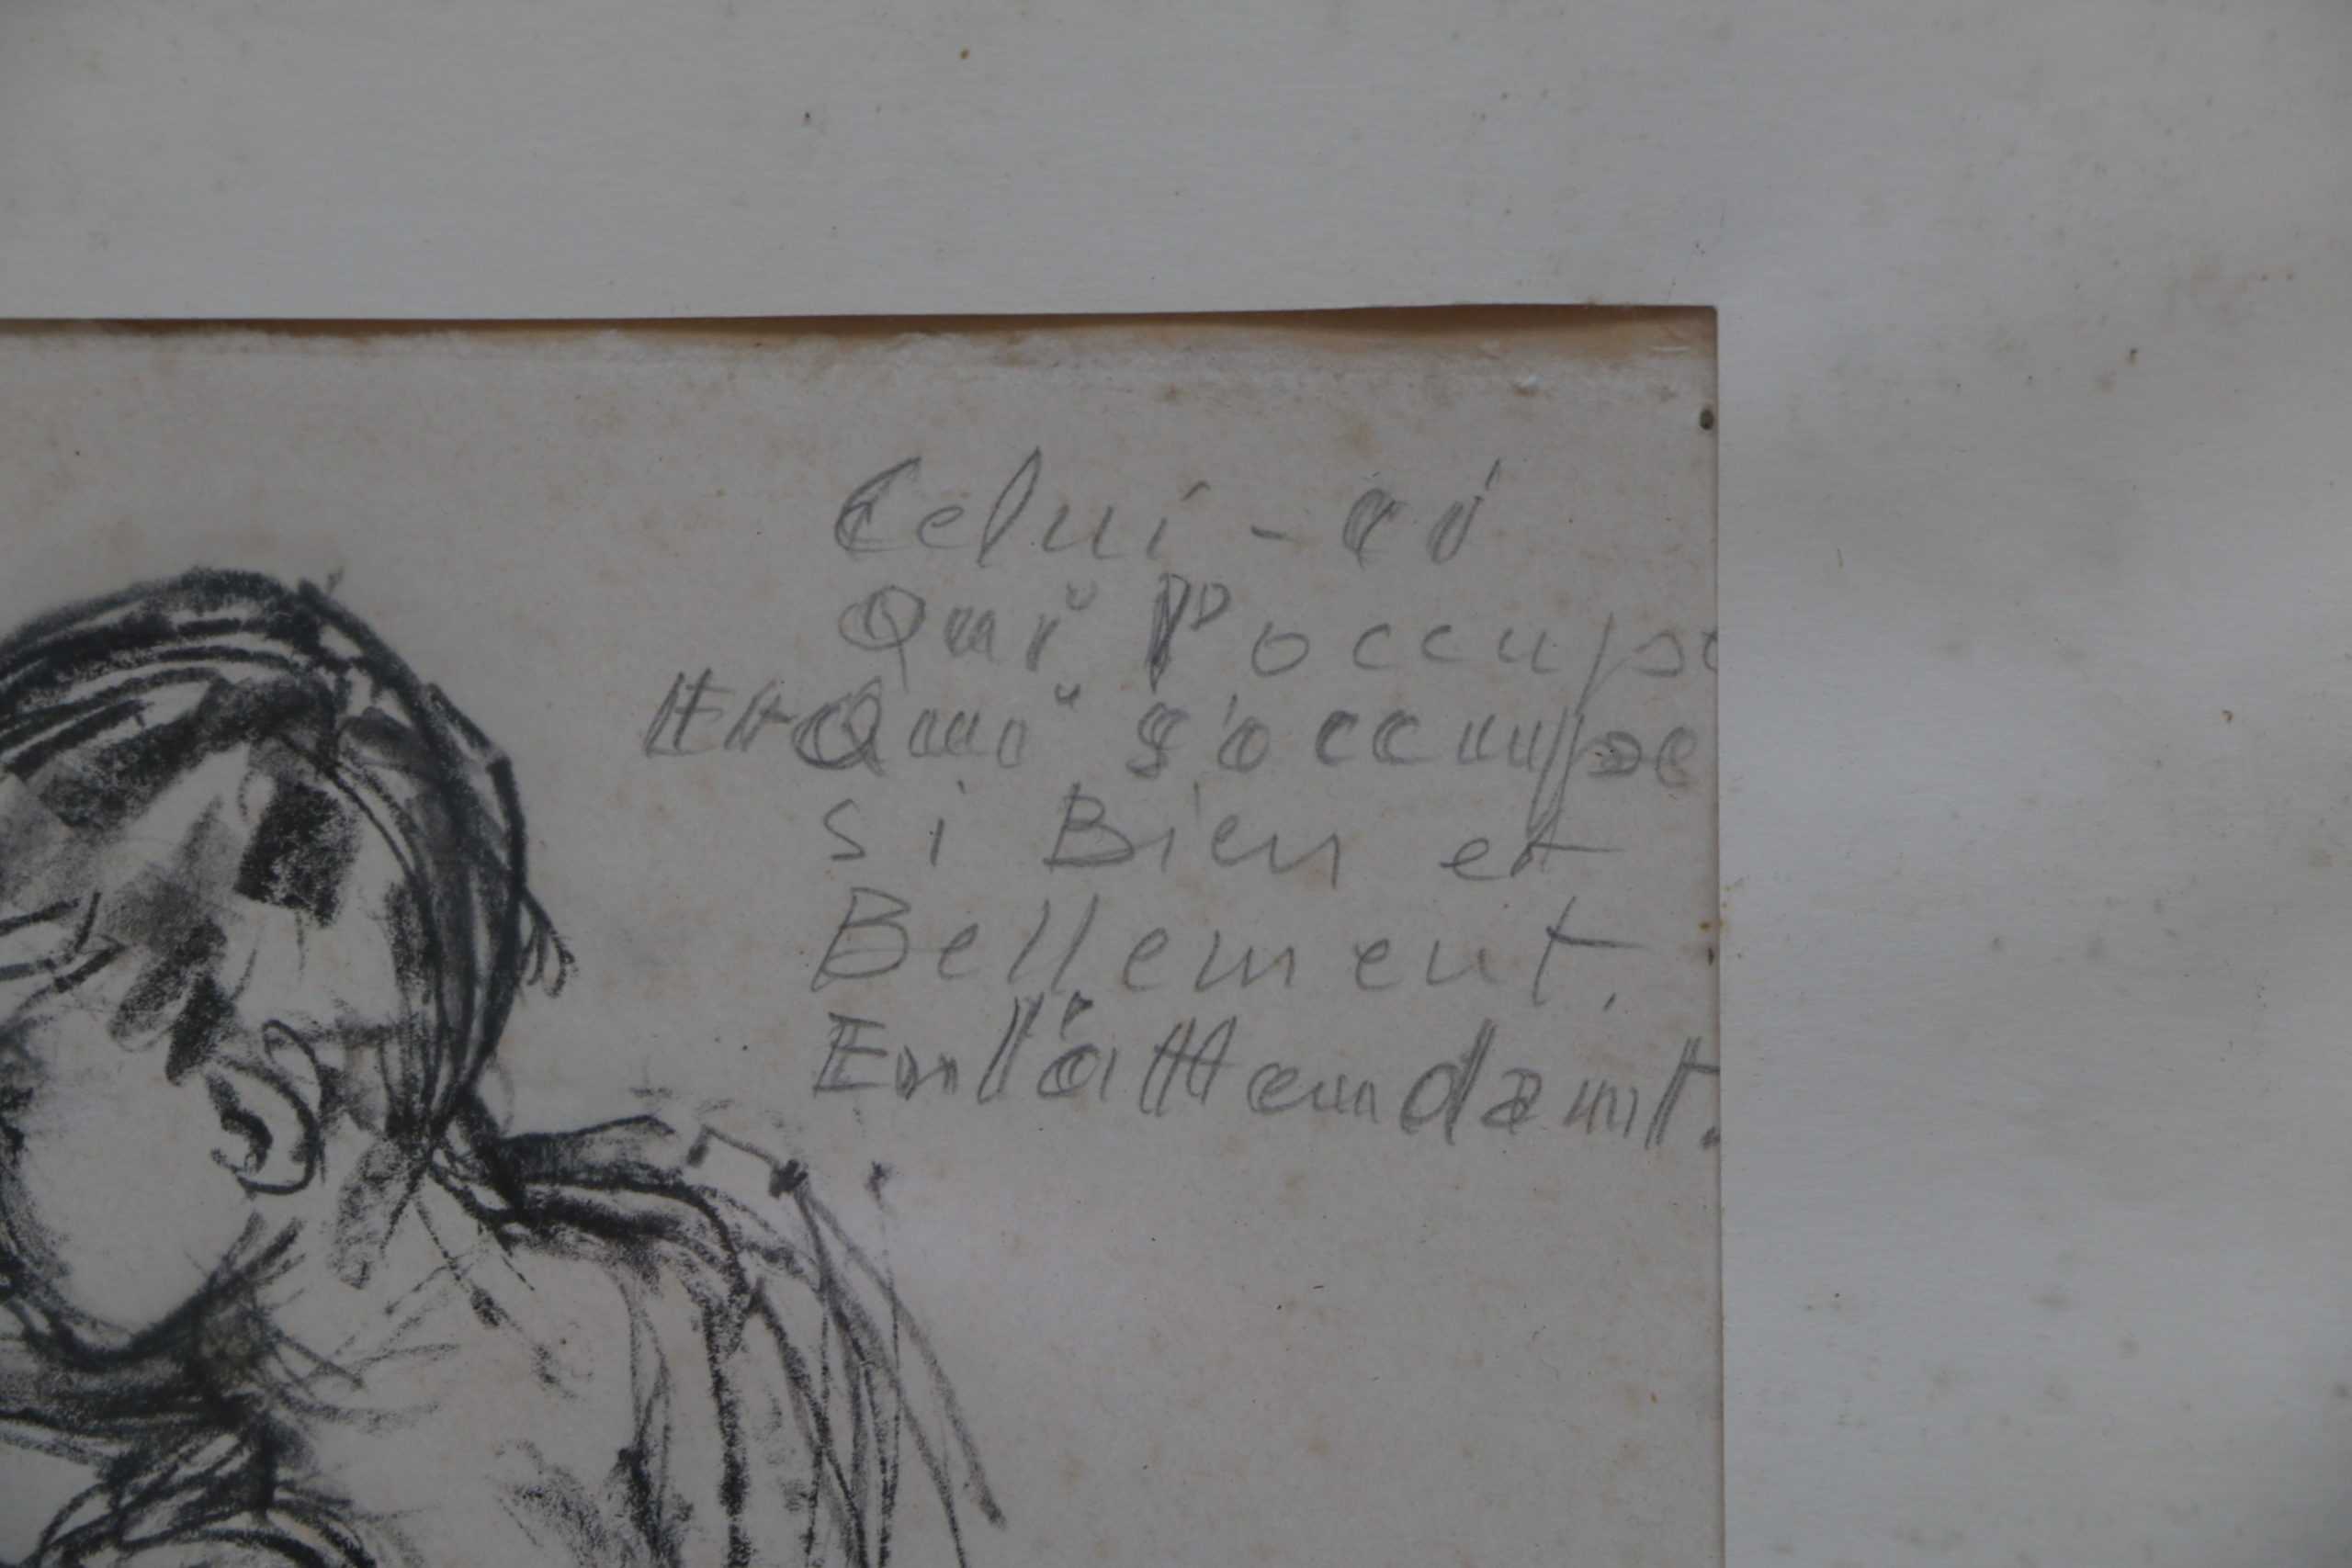 Celui-ci
Qui l'occupe
Et Qui s'occupe
si Bien et
Bellement.
En l'attendant.